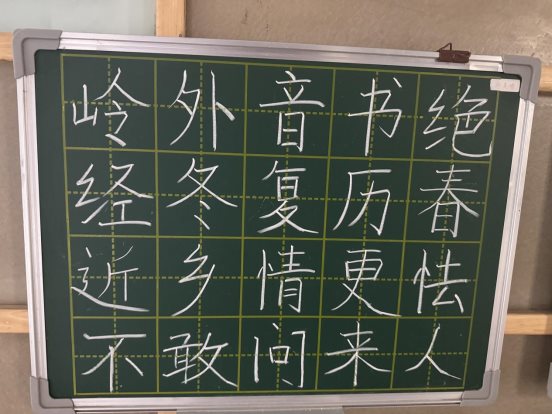 岭外音书绝
经冬复历春
近乡情更怯
不敢问来人